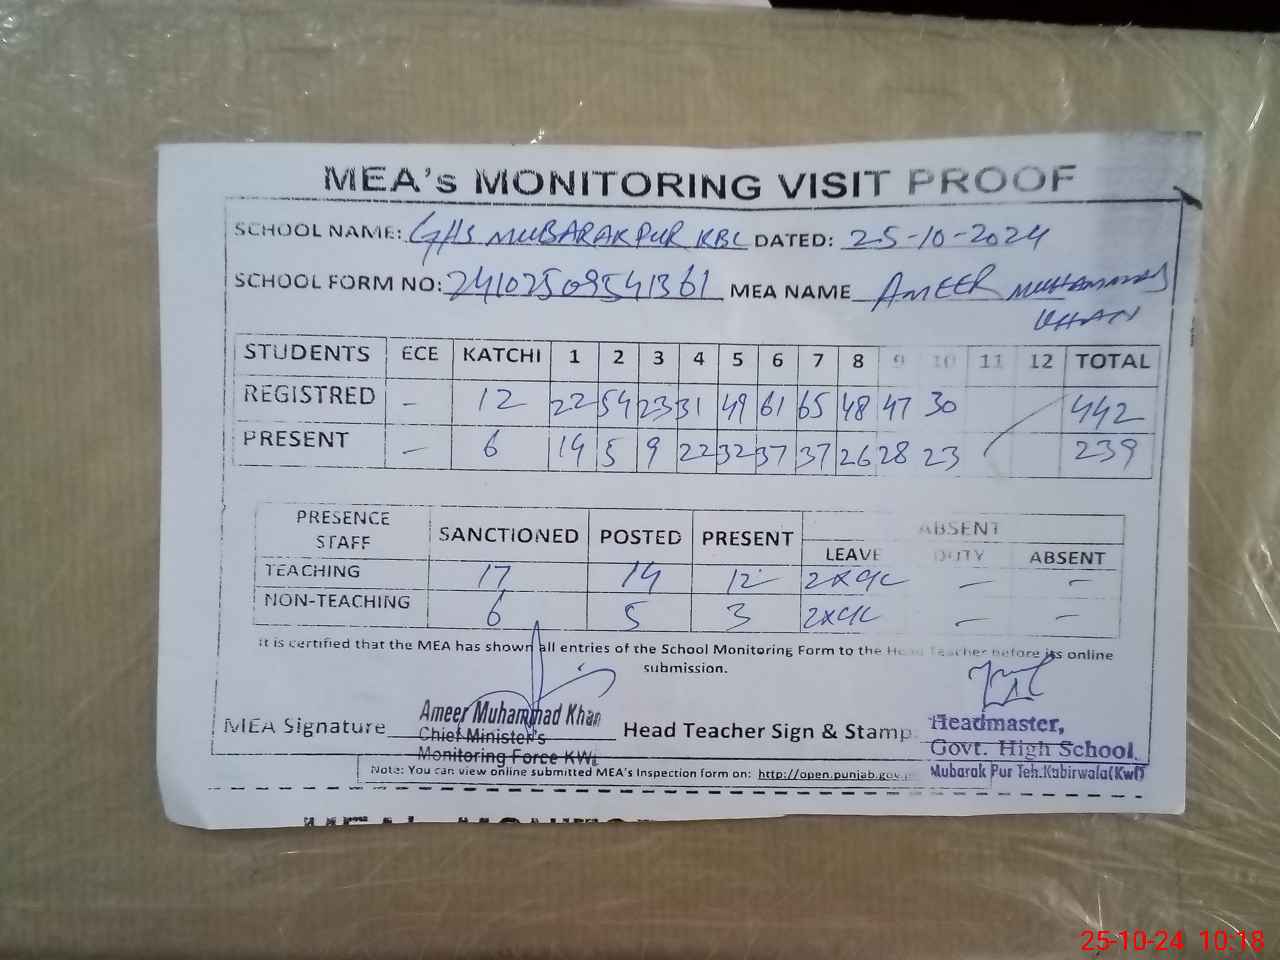 MEA's MONITORING VISIT PROOF
SCHOOL NAME: GHS MUBARAKPUR KBL DATED: 25-10-2024
SCHOOL FORM NO: 24102509541361 MEA NAME AMEER MUHAMMAD KHAN
STUDENTS ECE KATCHI 1 2 3 4 5 6 7 8 9 10 11 12 TOTAL
REGISTRED - 12 22 54 23 31 49 61 65 48 47 30 442
PRESENT - 6 14 5 9 22 32 37 37 26 28 23 239
PRESENCE STAFF SANCTIONED POSTED PRESENT ABSENT
LEAVE DUTY ABSENT
TEACHING 17 14 12 2xCL - -
NON-TEACHING 6 5 3 2xCL - -
It is certified that the MEA has shown all entries of the School Monitoring Form to the Head Teacher before its online
submission.
MEA Signature Ameer Muhammad Khan Head Teacher Sign & Stamp Headmaster,
Chief Minister's Govt. High School,
Monitoring Force KWL Mubarak Pur Teh.Kabirwala(Kwl)
Note: You can view online submitted MEA's Inspection form on: http://open.punjab.gov.
25-10-24 10:18